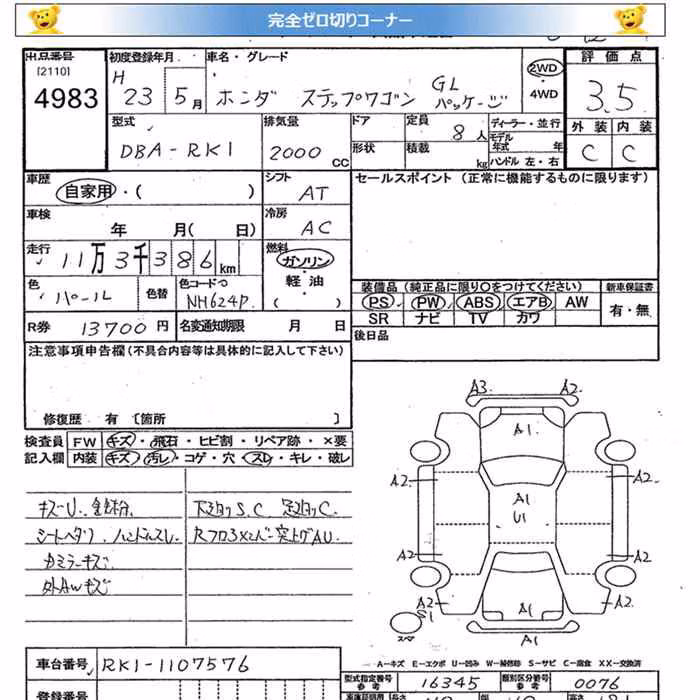 完全ゼロ切りコーナー
出品番号 初度登録年月 車名・グレード 評価点
[2110]
4983
H 23 5月 ホンダ ステップワゴン GLパッケージ
2WD
・
4WD
3.5
型式 排気量 ドア 定員 8人 ディーラー・並行 外装 内装
DBA-RK1 2000cc 形状 積載 kg モデル年式 年 C C
ハンドル 左・右
車歴 シフト セールスポイント (正常に機能するものに限ります)
自家用・( ) AT
車検 冷房
年 月( 日) AC
走行 燃料
11万3千386km ガソリン・軽油・( )
色 色替 色コードNo 装備品(純正品に限り○をつけてください) 新車保証書
パール NH624P PS PW ABS エアB AW 有・無
SR ナビ TV カワ
R券 13700円 名変通知期限 月 日 後日品
注意事項申告欄(不具合内容等は具体的に記入して下さい)
修復歴 有 [箇所 ]
検査員 FW キズ・飛石・ヒビ割・リペア跡・×要
記入欄 内装 キズ・汚レ・コゲ・穴・スレ・キレ・破レ
キズU.
下廻りS.C
シートヘタリ、ハンドルスレ
カドミラーキズ
外AWキズ
A3 A2
A1
A2 A2
A1
U1
A2 A2
A2 A1 A2
S1
スペア A1
A-キズ E-エクボ U-凹み W-補修跡 S-サビ C-腐食 XX-交換済
車台番号 RK1-1107576
型式指定番号 参考 16345 類別区分番号 参考 0076
登録番号